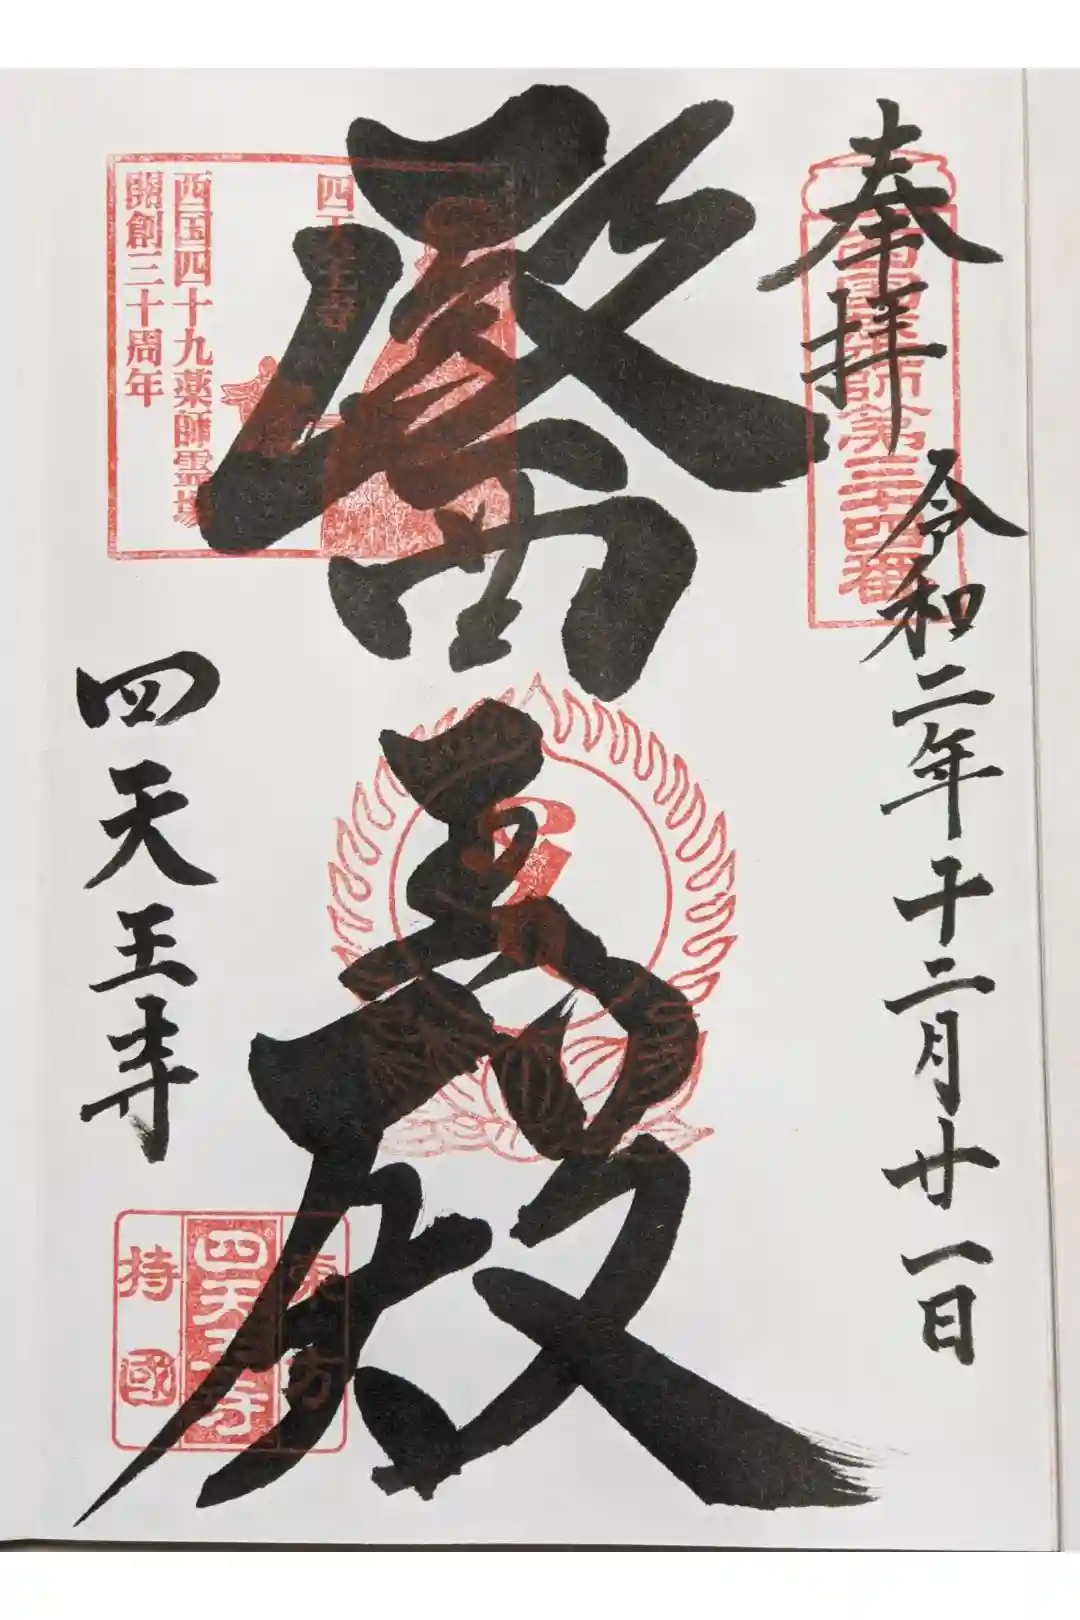 奉拝
令和二年十二月廿一日
西國薬師第三十四番
醫王殿
四天王寺
西国四十九薬師霊場
開創三十周年
四天王寺
東方
四天王寺
持國